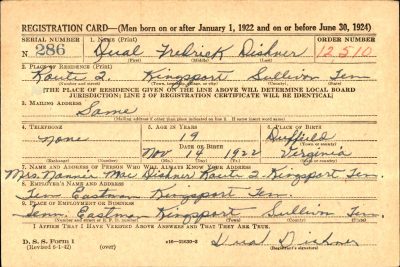 REGISTRATION CARD—(Men born on or after January 1, 1922 and on or before June 30, 1924)
SERIAL NUMBER 1. NAME (Print) ORDER NUMBER
N 286 Dual Fredrick Dishner 12510
(First) (Middle) (Last)
2. PLACE OF RESIDENCE (Print)
Route 2. Kingsport Sullivan Tenn
[THE PLACE OF RESIDENCE GIVEN ON THE LINE ABOVE WILL DETERMINE LOCAL BOARD
JURISDICTION; LINE 2 OF REGISTRATION CERTIFICATE WILL BE IDENTICAL]
3. MAILING ADDRESS
Same
[Mailing address if other than place indicated on line 2. If same insert word same]
4. TELEPHONE 5. AGE IN YEARS 6. PLACE OF BIRTH
None 19 Duffield
DATE OF BIRTH (Town or county)
Nov 14 1922 Virginia
7. NAME AND ADDRESS OF PERSON WHO WILL ALWAYS KNOW YOUR ADDRESS
Mrs. Nannie Mae Dishner Route 2. Kingsport Tenn.
8. EMPLOYER'S NAME AND ADDRESS
Tenn Eastman Kingsport Tenn.
9. PLACE OF EMPLOYMENT OR BUSINESS
Tenn. Eastman Kingsport Sullivan Tenn.
I AFFIRM THAT I HAVE VERIFIED ABOVE ANSWERS AND THAT THEY ARE TRUE.
D. S. S. Form 1
(Revised 6-1-42) (over) Dual Dishner
(Registrant's signature)